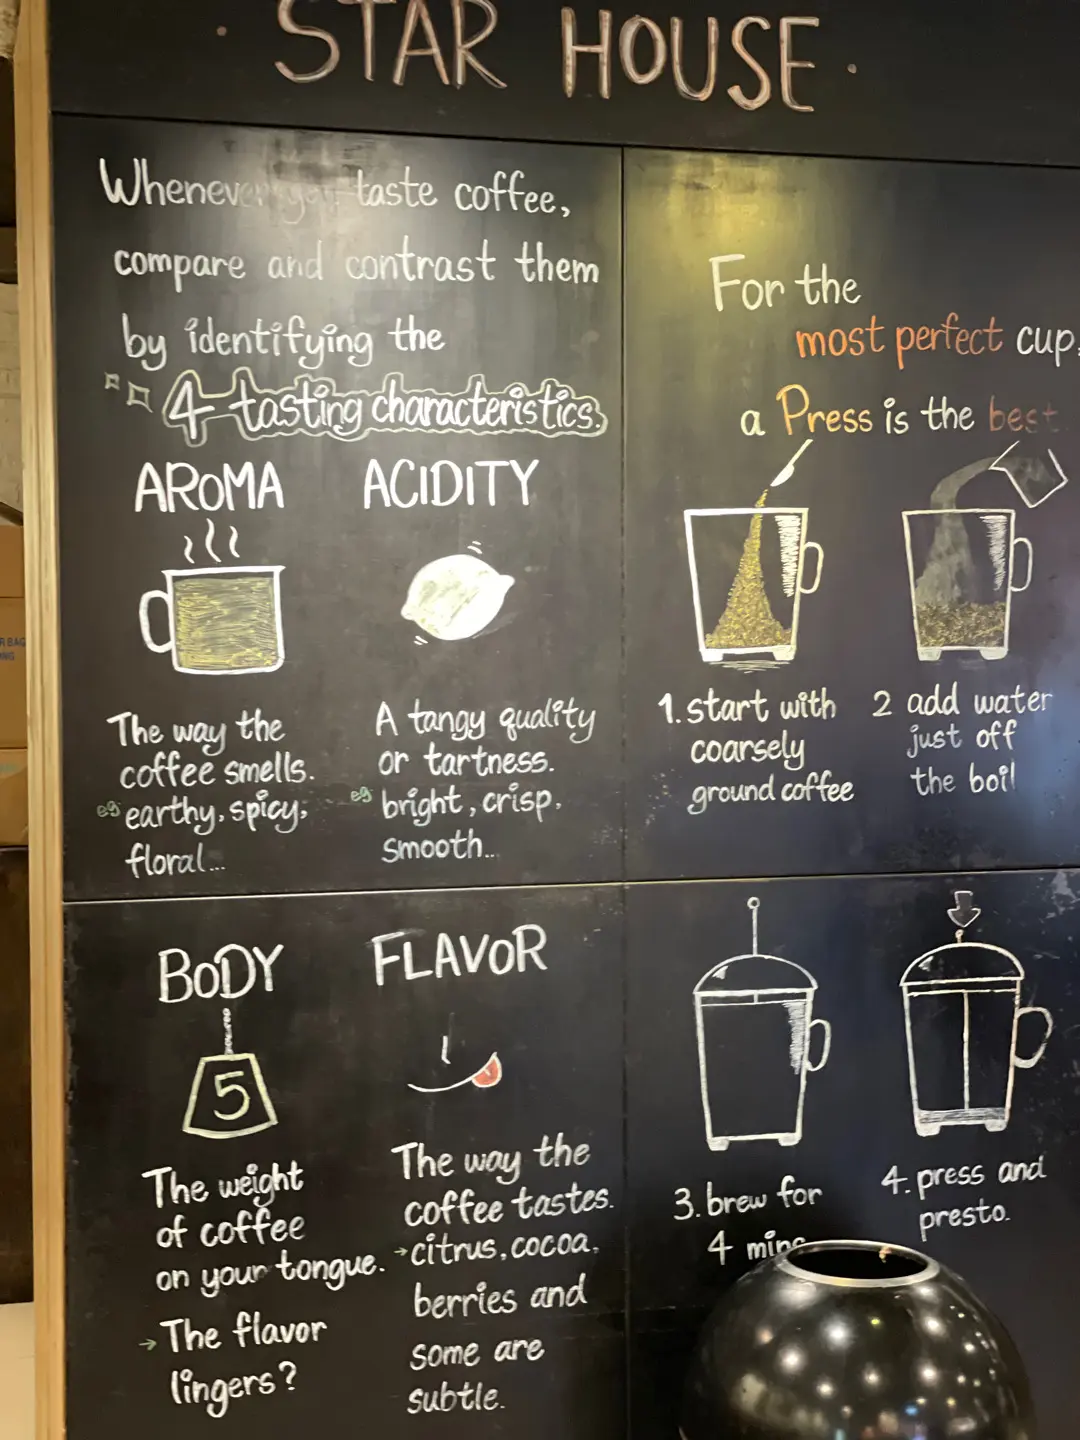 STAR HOUSE
Whenever you taste coffee,
compare and contrast them
by identifying the
4 tasting characteristics.
AROMA
The way the
coffee smells.
eg earthy, spicy,
floral...
ACIDITY
A tangy quality
or tartness.
eg bright, crisp,
smooth...
BODY
5
The weight
of coffee
on your tongue.
→ The flavor
lingers?
FLAVOR
The way the
coffee tastes.
→ citrus, cocoa,
berries and
some are
subtle.
For the
most perfect cup,
a Press is the best.
1. start with
coarsely
ground coffee
2 add water
just off
the boil
3. brew for
4 mins
4. press and
presto.